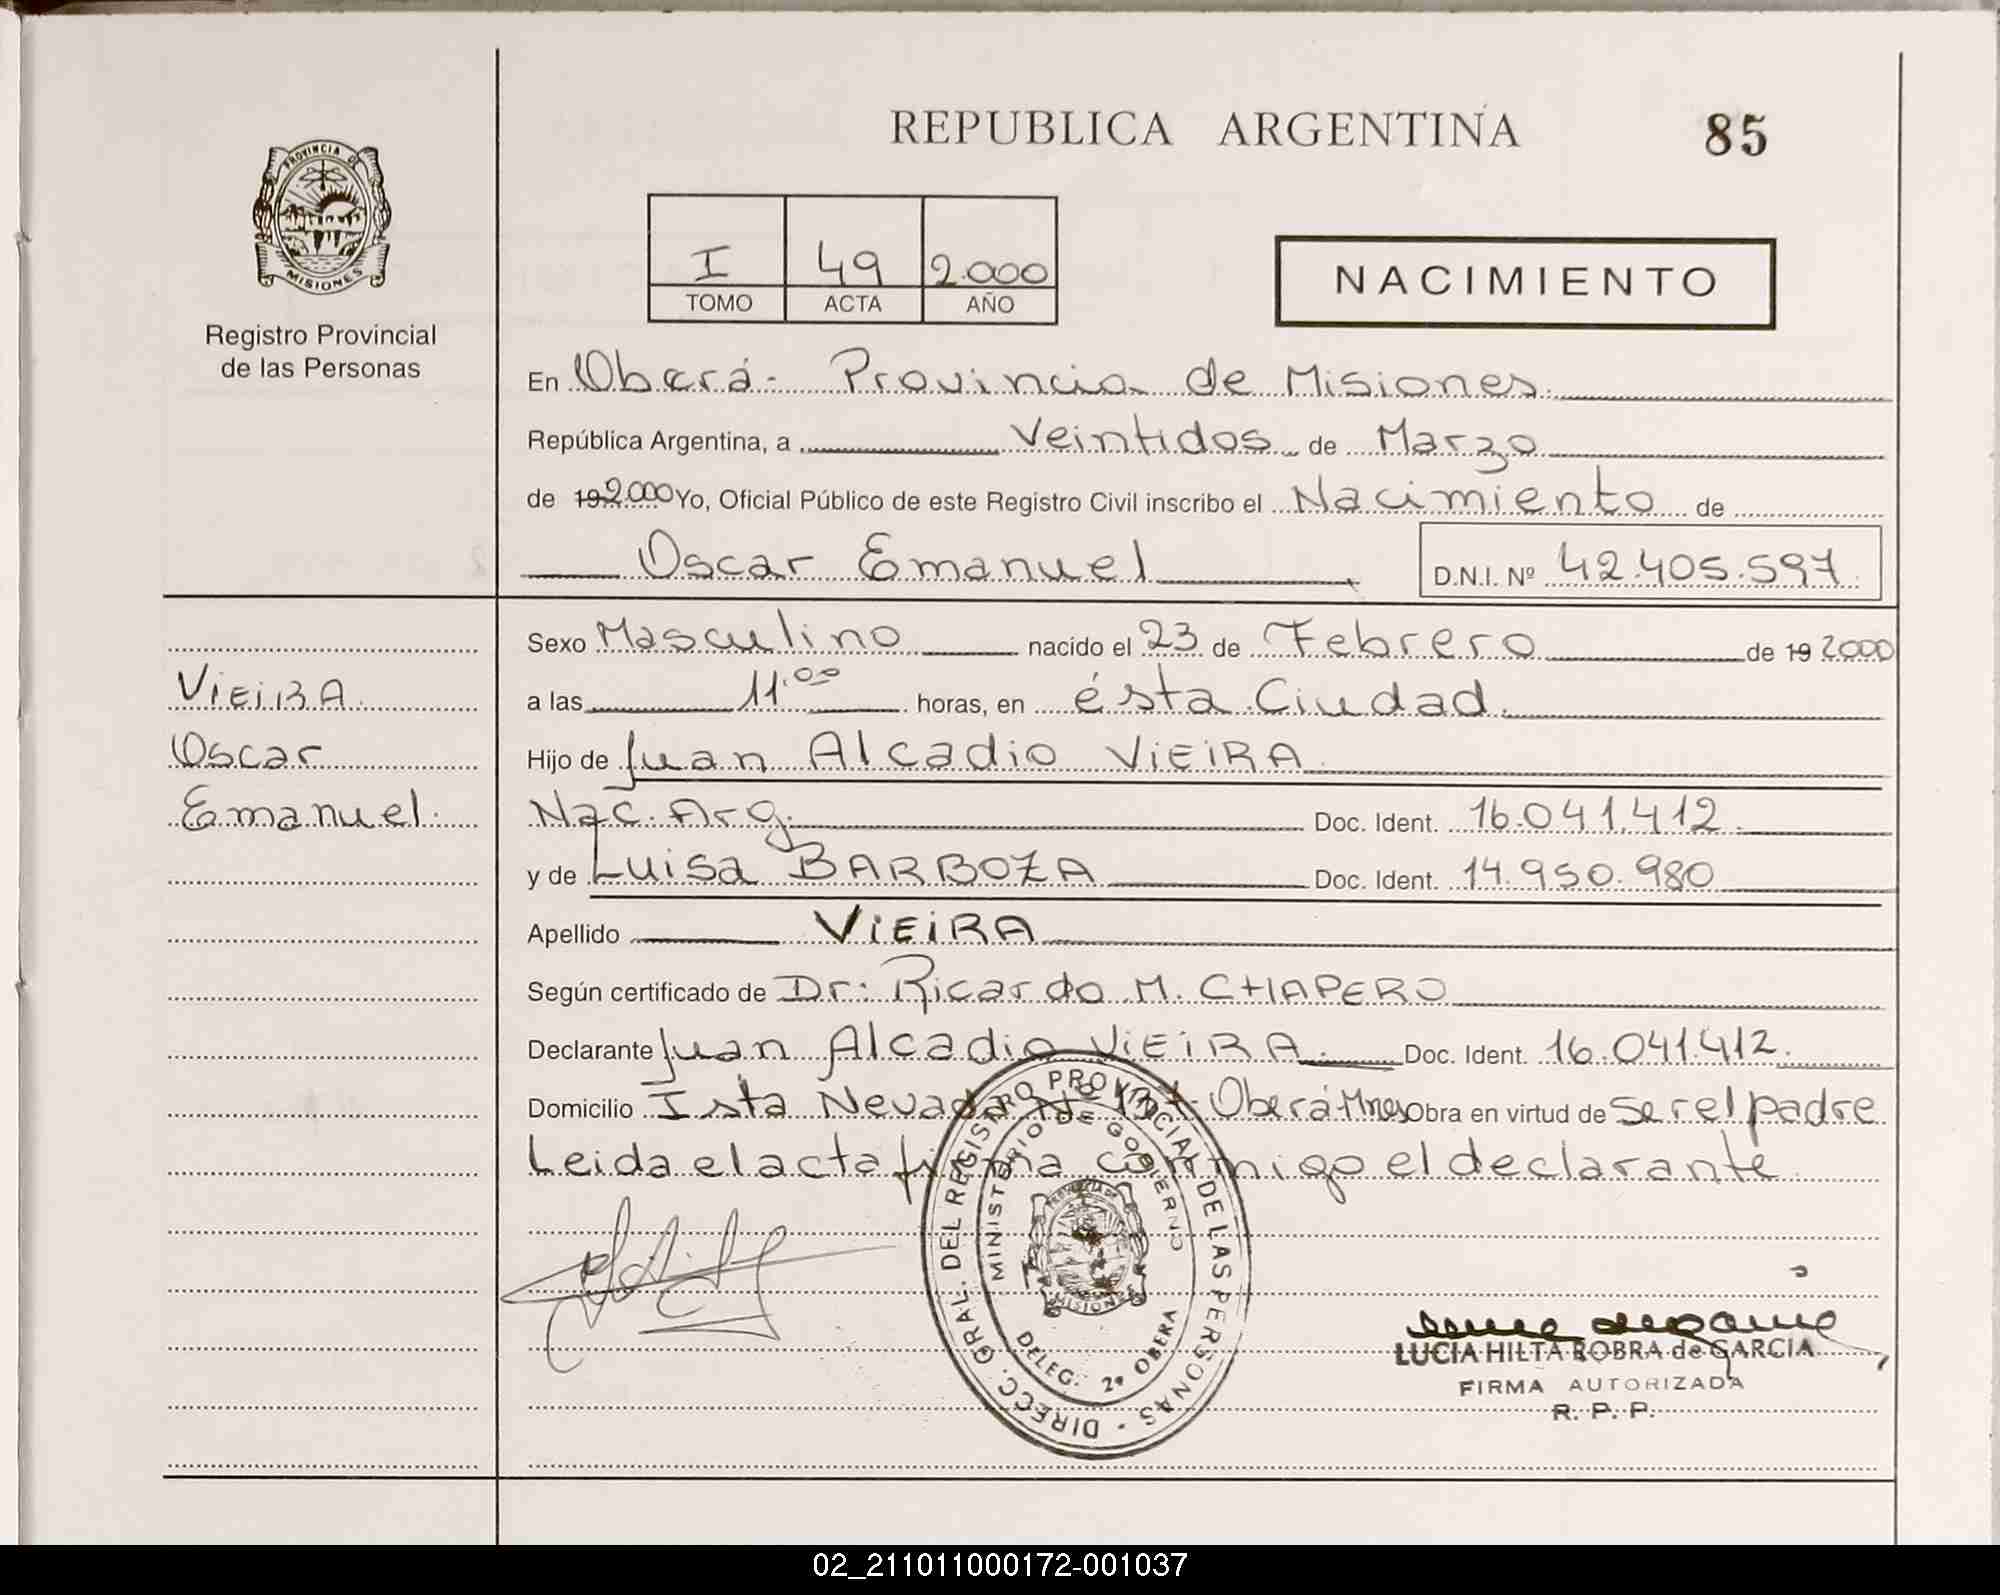 REPUBLICA ARGENTINA
85
PROVINCIA DE
MISIONES
Registro Provincial
de las Personas
I 49 2.000
TOMO ACTA AÑO
NACIMIENTO
En Oberá - Provincia de Misiones.
República Argentina, a Veintidos de Marzo
de 19 2.000 Yo, Oficial Público de este Registro Civil inscribo el Nacimiento de
Oscar Emanuel D.N.I. Nº 42.405.597.
Sexo Masculino nacido el 23 de Febrero de 19 2000
a las 11.00 horas, en ésta Ciudad.
Hijo de Juan Alcadio VIEIRA
Nac. Arg. Doc. Ident. 16.041.412.
y de Luisa BARBOZA Doc. Ident. 14.950.980
Apellido VIEIRA
Según certificado de Dr: Ricardo M. CHAPERO
Declarante Juan Alcadio VIEIRA. Doc. Ident. 16.041.412.
Domicilio Ista Nevada Oberá Mnes Obra en virtud de ser el padre
Leida el acta firma conmigo el declarante
VIEIRA.
Oscar
Emanuel.
DIRECC. GRAL. DEL REGISTRO PROVINCIAL DE LAS PERSONAS -
MINISTERIO DE GOBIERNO
PROVINCIA DE
MISIONES
DELEG. 2ª OBERA
LUCIA HILTA ROBRA de GARCIA
FIRMA AUTORIZADA
R. P. P.
02_211011000172-001037